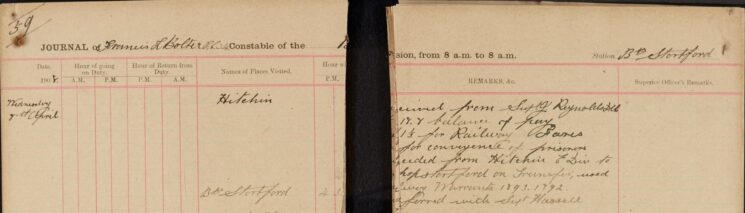 59
JOURNAL of Francis L Colter P.C. Constable of the B
sion, from 8 a.m. to 8 a.m. Station Bp Stortford
Date. Hour of going on Duty. Hour of Return from Duty. Names of Places Visited. Hour
REMARKS, &c. Superior Officer's Remarks.
190 A.M. P.M. A.M. P.M. P.M.
Wednesday
7th April
Hitchin
eceived from Supt Reynolds
17.7 balance of pay
for Railway Fares
for conveyence of prisoner
ceeded from Hitchin E Div to
hopstortford on Transfer, used
Railway Warrants 1891. 1892
Bp Stortford 4
ferred with Supt Hassell